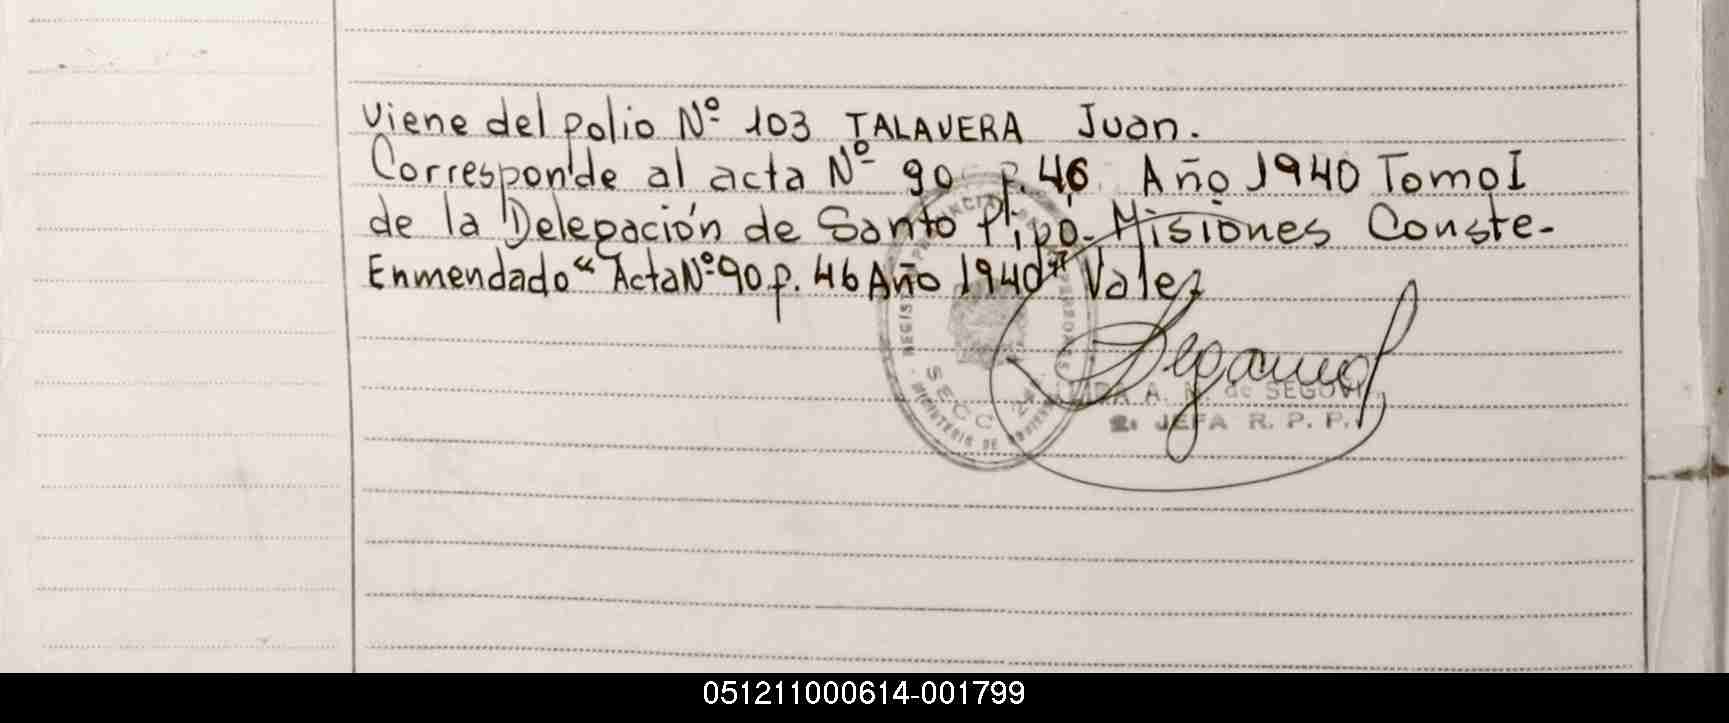 Viene del folio Nº 103 TALAVERA Juan.
Corresponde al acta Nº 90 f. 46 Año 1940 Tomo I
de la Delegación de Santo Pipó - Misiones Conste.-
Enmendado "Acta Nº 90 f. 46 Año 1940" Vale
SECC
MINISTERIO DE GOBIERNO
A. N. de SEGOVIA
2. JEFA R. P. P.
051211000614-001799